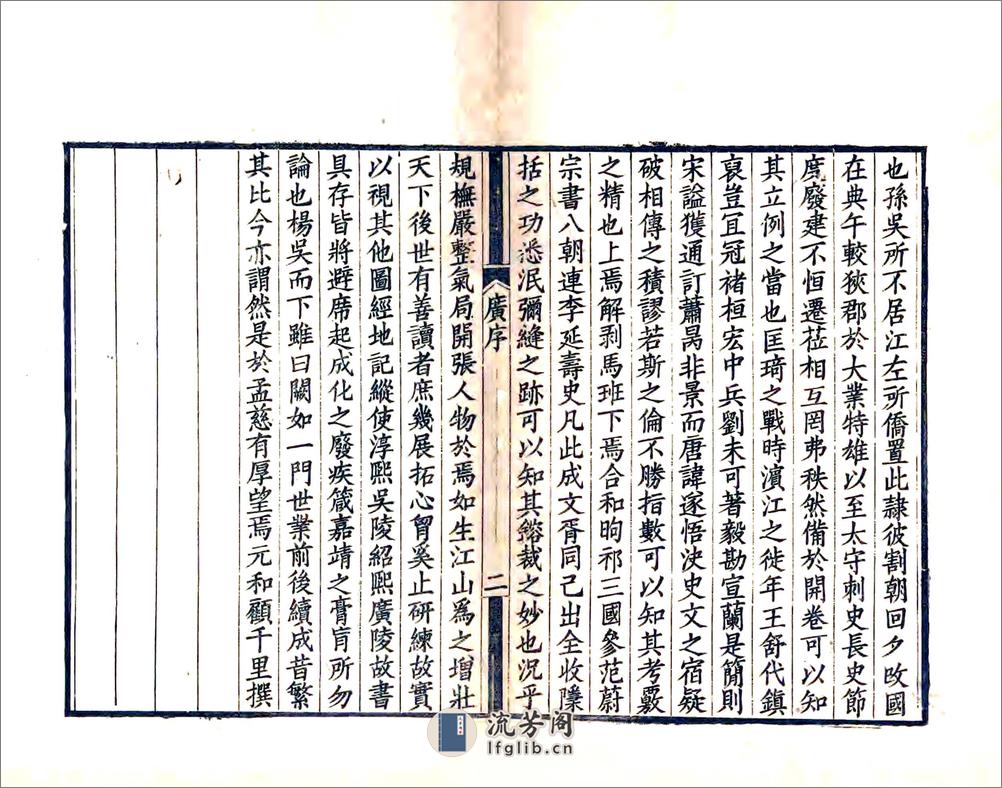 也孫吳所不居江左所僑置此隷彼割朝回夕改國
在典午較狹郡於大業特雄以至太守刺史長史節
度廢建不恒遷莅相互罔弗秩然備於開卷可以知
其立例之當也匡琦之戰時濱江之徙年王舒代鎭
裒豈宜冠褚桓宏中兵劉未可著毅勘宣蘭是簡則
宋謚獲通訂蕭昺非景而唐諱遂悟決史文之宿疑
破相傳之積謬若斯之倫不勝指數可以知其考覈
之精也上焉解剥馬班下焉合和昫祁三國參范蔚
宗書八朝連李延壽史凡此成文胥同己出全收隱
括之功悉泯彌縫之跡可以知其鎔裁之妙也況乎
廣序
二
規橅嚴整氣局開張人物於焉如生江山爲之增壯
天下後世有善讀者庶幾展拓心胷奚止研練故實
以視其他圖經地記縱使淳熙吳陵紹熙廣陵故書
具存皆將避席起成化之廢疾箴嘉靖之膏肓所勿
論也楊吳而下雖曰闕如一門世業前後續成昔繁
其比今亦謂然是於孟慈有厚望焉元和顧千里撰
流芳阁
lfglib.cn